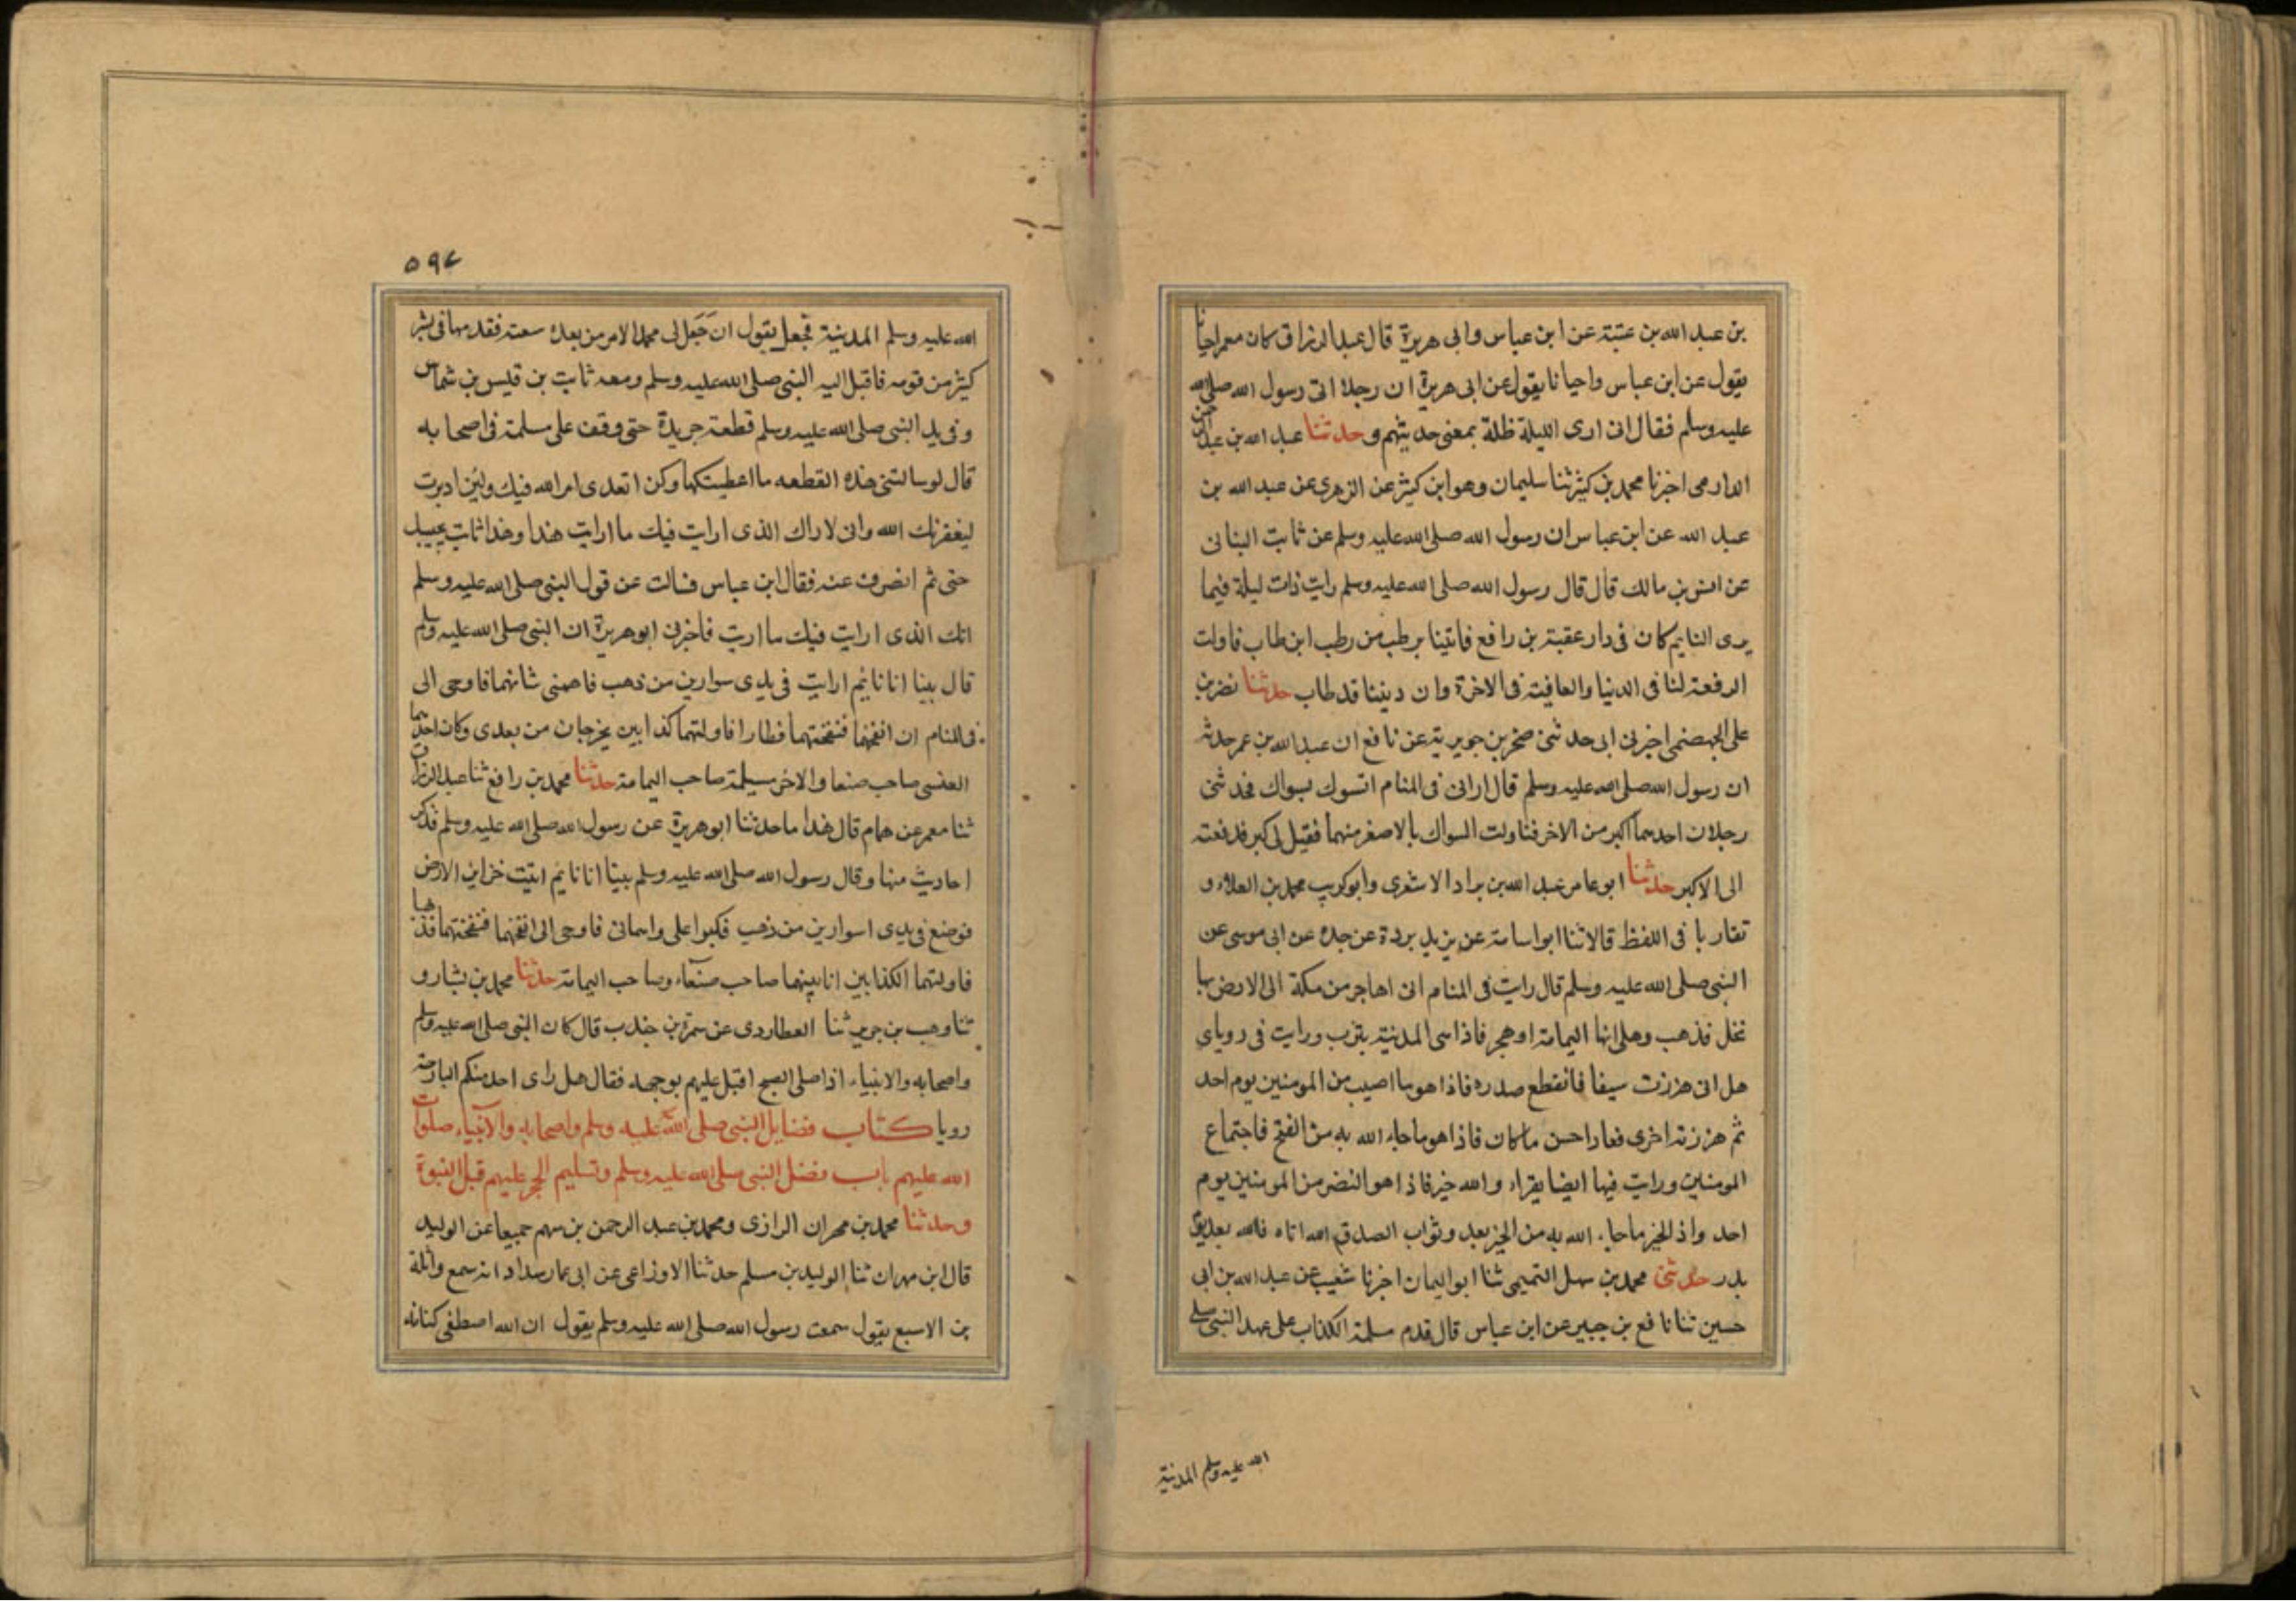 بن عبد الله بن عتبة عن ابن عباس وابى هريرة قال عبد الرزاق كان معمر احيانا
يقول عن ابن عباس واحيانا يقول عن ابى هريرة ان رجلا اتى رسول الله صلى الله
عليه وسلم فقال انى ارى الليلة ظلة بمعنى حديثهم وحدثنا عبد الله بن عبد الرحمن
الدارمى اخبرنا محمد بن كثير ثنا سليمان وهو ابن كثير عن الزهرى عن عبيد الله بن
عبد الله عن ابن عباس ان رسول الله صلى الله عليه وسلم عن ثابت البنانى
عن انس بن مالك قال قال رسول الله صلى الله عليه وسلم رايت ذات ليلة فيما
يرى النايم كان فى دار عقبة بن رافع فاتينا برطب من رطب ابن طاب فاولت
الرفعة لنا فى الدنيا والعافية فى الاخرة وان ديننا قد طاب حدثنا نضر بن
على الجهضمى اخبرنى ابى حدثنى صخر بن جويرية عن نافع ان عبد الله بن عمر حدثه
ان رسول الله صلى الله عليه وسلم قال ارانى فى المنام اتسوك بسواك فجدثنى
رجلان احدهما اكبر من الاخر فناولت السواك بالاصغر منهما فقيل لى كبر فدفعته
الى الاكبر حدثنا ابو عامر عبد الله بن براد الاشعرى وابو كريب محمد بن العلاء و
تقاربا فى اللفظ قالا ثنا ابو اسامة عن بن يد بردة عن جده عن ابى موسى عن
النبى صلى الله عليه وسلم قال رايت فى المنام انى اهاجر من مكة الى الارض بها
نخل فذهب وهلى انها اليمامة او هجر فاذا هى المدينة يثرب ورايت فى روياى
هل انى هززت سيفا فانقطع صدره فاذا هو ما اصيب من المومنين يوم احد
ثم هززته اخرى فعاد احسن ما كان فاذا هو ما جاء الله به من الفتح فاجتماع
المومنين ورايت فيها ايضا بقراء والله خير فاذا هو النضر من المومنين يوم
احد واذ الخير ما جاء الله به من الخير بعد وثواب الصدق الله اتاه فالله بعد يوم
بدر حدثنى محمد بن سهل التميمى ثنا ابو اليمان اخبرنا شعيب عن عبد الله بن ابى
حسين ثنا نافع بن جبير عن ابن عباس قال قدم سلمة الكذاب على عهد النبى صلى
الله عليه وسلم المدينة
٥٩٧
الله عليه وسلم المدينة فجعل يقول ان جعل لى محمد الامر من بعده سعته فقدمها فى بشر
كثير من قومه فاقبل اليه النبى صلى الله عليه وسلم ومعه ثابت بن قيس بن شماس
وفى يد النبى صلى الله عليه وسلم قطعة جريدة حتى وقف على مسلمة فى اصحابه
قال لو سالتنى هذه القطعه ما اعطيتكها وكن اتعدى امر الله فيك ولين ادبرت
ليغفرنك الله وانى لاراك الذى ارايت فيك ما ارايت هندا وهذا ثابت يجيبك
حتى ثم انصرف عنه فقال ابن عباس فسالت عن قول النبى صلى الله عليه وسلم
انك الذى ارايت فيك ما اريت فاخبرنى ابو هريرة ان النبى صلى الله عليه وسلم
قال بينا انا نايم ارايت فى يدى سوارين من ذهب فاهمنى شانهما فاوحى الى
فى المنام ان انفخهما فنفختهما فطارا فاولتهما كذابين يخرجان من بعدى وكان احدهما
العنسى صاحب صنعا والاخر مسيلمة صاحب اليمامة حدثنا محمد بن رافع ثنا عبد الرزاق
ثنا معمر عن همام قال هذا ما حدثنا ابو هريرة عن رسول الله صلى الله عليه وسلم فذكر
احاديث منها وقال رسول الله صلى الله عليه وسلم بينا انا نايم اتيت خزاين الارض
فوضع فى يدى اسوارين من ذهب فكبوا على واهمانى فاوحى الى انفخهما فنفختهما فذهبا
فاولتهما الكذابين انا بينهما صاحب صنعاء وصاحب اليمامة حدثنا محمد بن بشار و
ثنا وهب بن جرير ثنا العطاردى عن سمرة بن جندب قال كان النبى صلى الله عليه وسلم
واصحابه والانبياء اذا صلى الصبح اقبل عليهم بوجهه فقال هل راى احد منكم البارحة
رويا كتاب فضايل النبى صلى الله عليه وسلم واصحابه والانبياء صلوات
الله عليهم باب فضل النبى صلى الله عليه وسلم وتسليم الحجر عليهم قبل النبوة
وحدثنا محمد بن مهران الرازى ومحمد بن عبد الرحمن بن سهم جميعا عن الوليد
قال ابن مهران ثنا الوليد بن مسلم حدثنا الاوزاعى عن ابى عمار سداد انه سمع واثلة
بن الاسبع يقول سمعت رسول الله صلى الله عليه وسلم يقول ان الله اصطفى كنانه